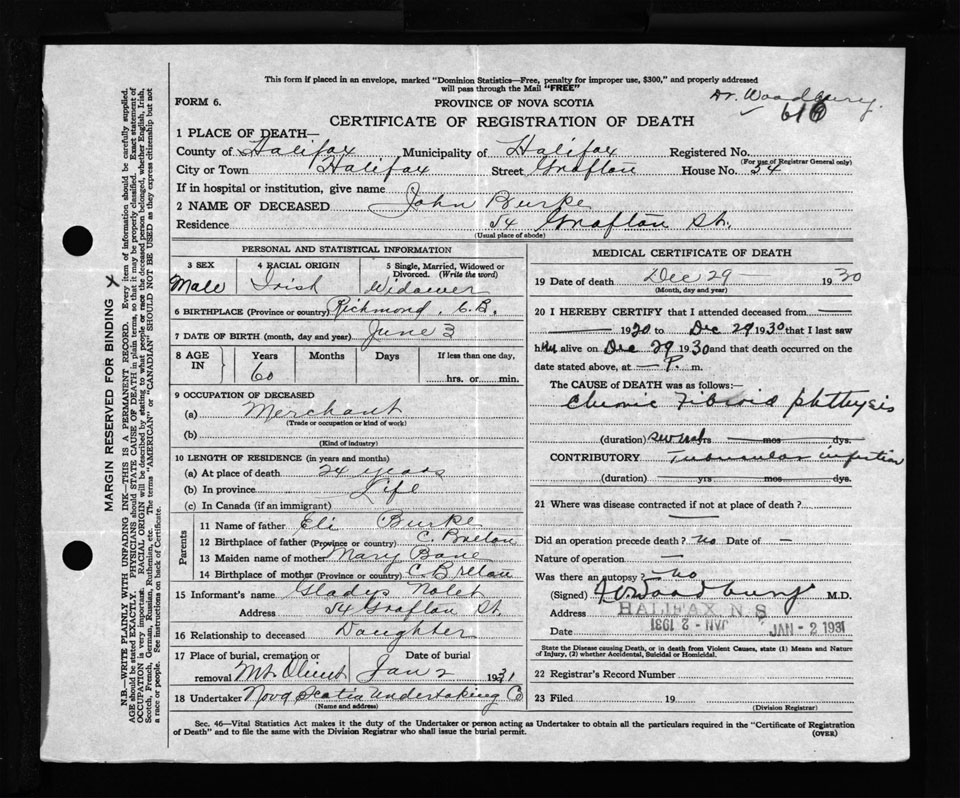 This form if placed in an envelope, marked "Dominion Statistics—Free, penalty for improper use, $300," and properly addressed
will pass through the Mail "FREE"
Dr. Woodbury.
FORM 6.
PROVINCE OF NOVA SCOTIA
CERTIFICATE OF REGISTRATION OF DEATH
1 PLACE OF DEATH—
County of Halifax Municipality of Halifax Registered No.
(For use of Registrar General only)
City or Town Halifax Street Grafton House No. 54
If in hospital or institution, give name
2 NAME OF DECEASED John Burke
Residence 54 Grafton St.
(Usual place of abode)
PERSONAL AND STATISTICAL INFORMATION
3 SEX 4 RACIAL ORIGIN 5 Single, Married, Widowed or Divorced. (Write the word)
Male Irish Widower
6 BIRTHPLACE (Province or country) Richmond, C.B.
7 DATE OF BIRTH (month, day and year) June 3
8 AGE IN Years Months Days If less than one day,
60 hrs. or min.
9 OCCUPATION OF DECEASED
(a) Merchant
(Trade or occupation or kind of work)
(b)
(Kind of industry)
10 LENGTH OF RESIDENCE (in years and months)
(a) At place of death 24 years
(b) In province Life
(c) In Canada (if an immigrant)
Parents
11 Name of father Eli Burke
12 Birthplace of father (Province or country) C. Breton
13 Maiden name of mother Mary Bane
14 Birthplace of mother (Province or country) C. Breton
15 Informant's name Gladys Nolet
Address 54 Grafton St.
16 Relationship to deceased Daughter
17 Place of burial, cremation or removal Date of burial
Mt. Olivet Jan 2 1931
18 Undertaker Nova Scotia Undertaking Co
(Name and address)
MEDICAL CERTIFICATE OF DEATH
19 Date of death Dec 29 1930
(Month, day and year)
20 I HEREBY CERTIFY that I attended deceased from
1930 to Dec 29 1930 that I last saw
him alive on Dec 29 1930 and that death occurred on the
date stated above, at — P. m.
The CAUSE of DEATH was as follows:—
Chronic Fibroid phthysis
(duration) several yrs mos dys.
CONTRIBUTORY Tubercular infection
(duration) yrs mos dys.
21 Where was disease contracted if not at place of death?
Did an operation precede death? no Date of —
Nature of operation —
Was there an autopsy? no
(Signed) Woodbury M.D.
Address HALIFAX N.S
Date JAN - 2 1931 JAN - 2 1931
State the Disease causing Death, or in death from Violent Causes, state (1) Means and Nature
of Injury, (2) whether Accidental, Suicidal or Homicidal.
22 Registrar's Record Number
23 Filed 19
(Division Registrar)
Sec. 46—Vital Statistics Act makes it the duty of the Undertaker or person acting as Undertaker to obtain all the particulars required in the "Certificate of Registration
of Death" and to file the same with the Division Registrar who shall issue the burial permit. (OVER)
MARGIN RESERVED FOR BINDING
N.B.—WRITE PLAINLY WITH UNFADING INK—THIS IS A PERMANENT RECORD. Every item of information should be carefully supplied.
AGE should be stated EXACTLY. PHYSICIANS should STATE CAUSE OF DEATH in plain terms, so that it may be properly classified. Exact statement of
OCCUPATION is very important. RACIAL ORIGIN will be described by stating to what people or race the deceased person belonged, whether English, Irish,
Scotch, French, German, Russian, Ruthenian, etc. The terms "AMERICAN" or "CANADIAN" SHOULD NOT BE USED as they express citizenship but not
a race or people. See instructions on back of Certificate.